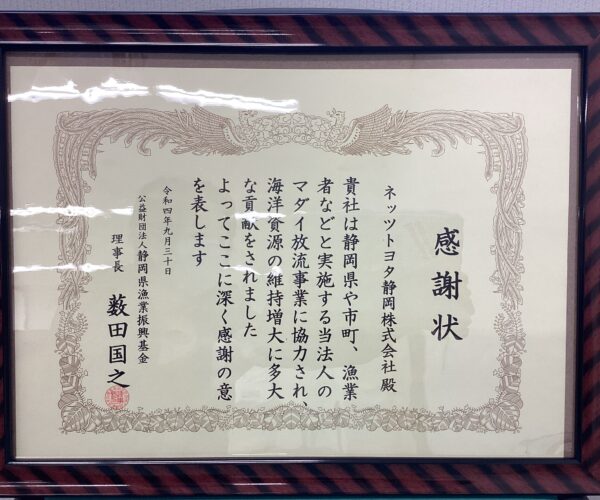 感謝状
ネッツトヨタ静岡株式会社殿
貴社は静岡県や市町、漁業
者などと実施する当法人の
マダイ放流事業に協力され、
海洋資源の維持増大に多大
な貢献をされました
よってここに深く感謝の意
を表します
令和四年九月三十日
公益財団法人静岡県漁業振興基金
理事長 薮田国之